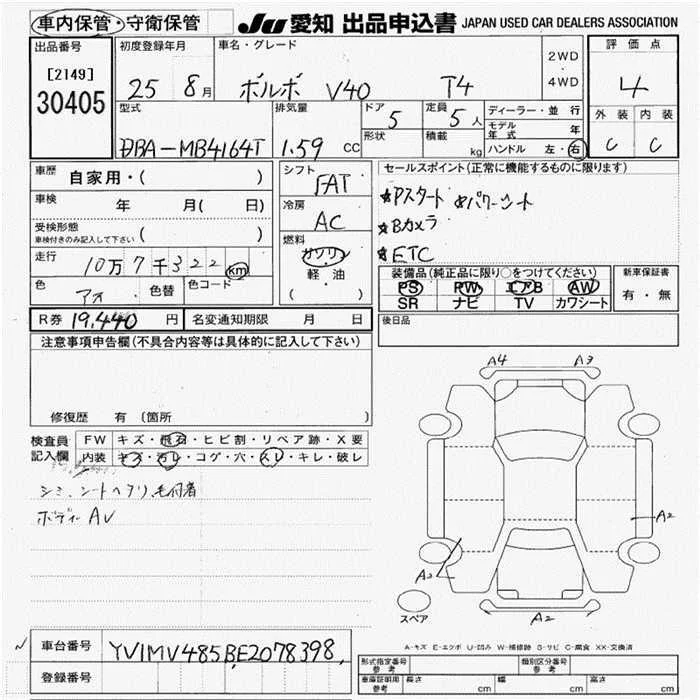 車内保管・守衛保管
JU 愛知 出品申込書 JAPAN USED CAR DEALERS ASSOCIATION
出品番号 初度登録年月 車名・グレード 評価点
[2149]
30405
25 8月 ボルボ V40 T4
2WD
・
4WD
4
型式 排気量 ドア 5 定員 5人 ディーラー・並行 外装 内装
モデル年式 年
DBA-MB4164T 1.59 CC 形状 積載 kg ハンドル 左・右 C C
車歴 自家用・( )
シフト FAT
セールスポイント(正常に機能するものに限ります)
☆Pスタート ☆パワーシート
☆Bカメラ
☆ETC
車検 年 月( 日)
冷房 AC
受検形態
車検付きのみ記入して下さい ( )
燃料 ガソリン
軽・油
・( )
走行 10万7千322 km
色 アオ 色替 色コード
装備品(純正品に限り○をつけてください) 新車保証書
PS PW エアB AW
SR ナビ TV カワシート
有・無
R券 19,440 円 名変通知期限 月 日
後日品
注意事項申告欄(不具合内容等は具体的に記入して下さい)
修復歴 有 (箇所
検査員記入欄
FW キズ・飛石・ヒビ割・リペア跡・X要
内装 キズ・汚レ・コゲ・穴・スレ・キレ・破レ
シミ、シートヘタリ、毛付着
ボディーAV
A4 A3
A2
A2
A2
スペア
A-キズ E-エクボ U-凹み W-補修跡 S-サビ C-腐食 XX-交換済
車台番号 YV1MV485BE2078398
登録番号
形式指定番号
参考
類別区分番号
参考
車庫証明用
参考
長さ cm 幅 cm 高さ cm